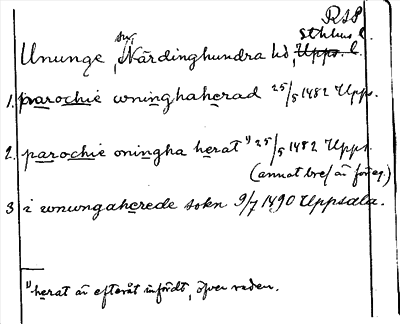 RSP
sn, Sthlms l.
Ununge, Närdinghundra hd, Upps. l.
1. parochie wninghaherad 25/5 1482 Upps.
2. parochie oningha herat 1) 25/5 1482 Upps.
(annat brev än föreg.)
3 i wnungaherede sokn 9/7 1490 Uppsala.
1) herat är efteråt infördt, öfver raden.